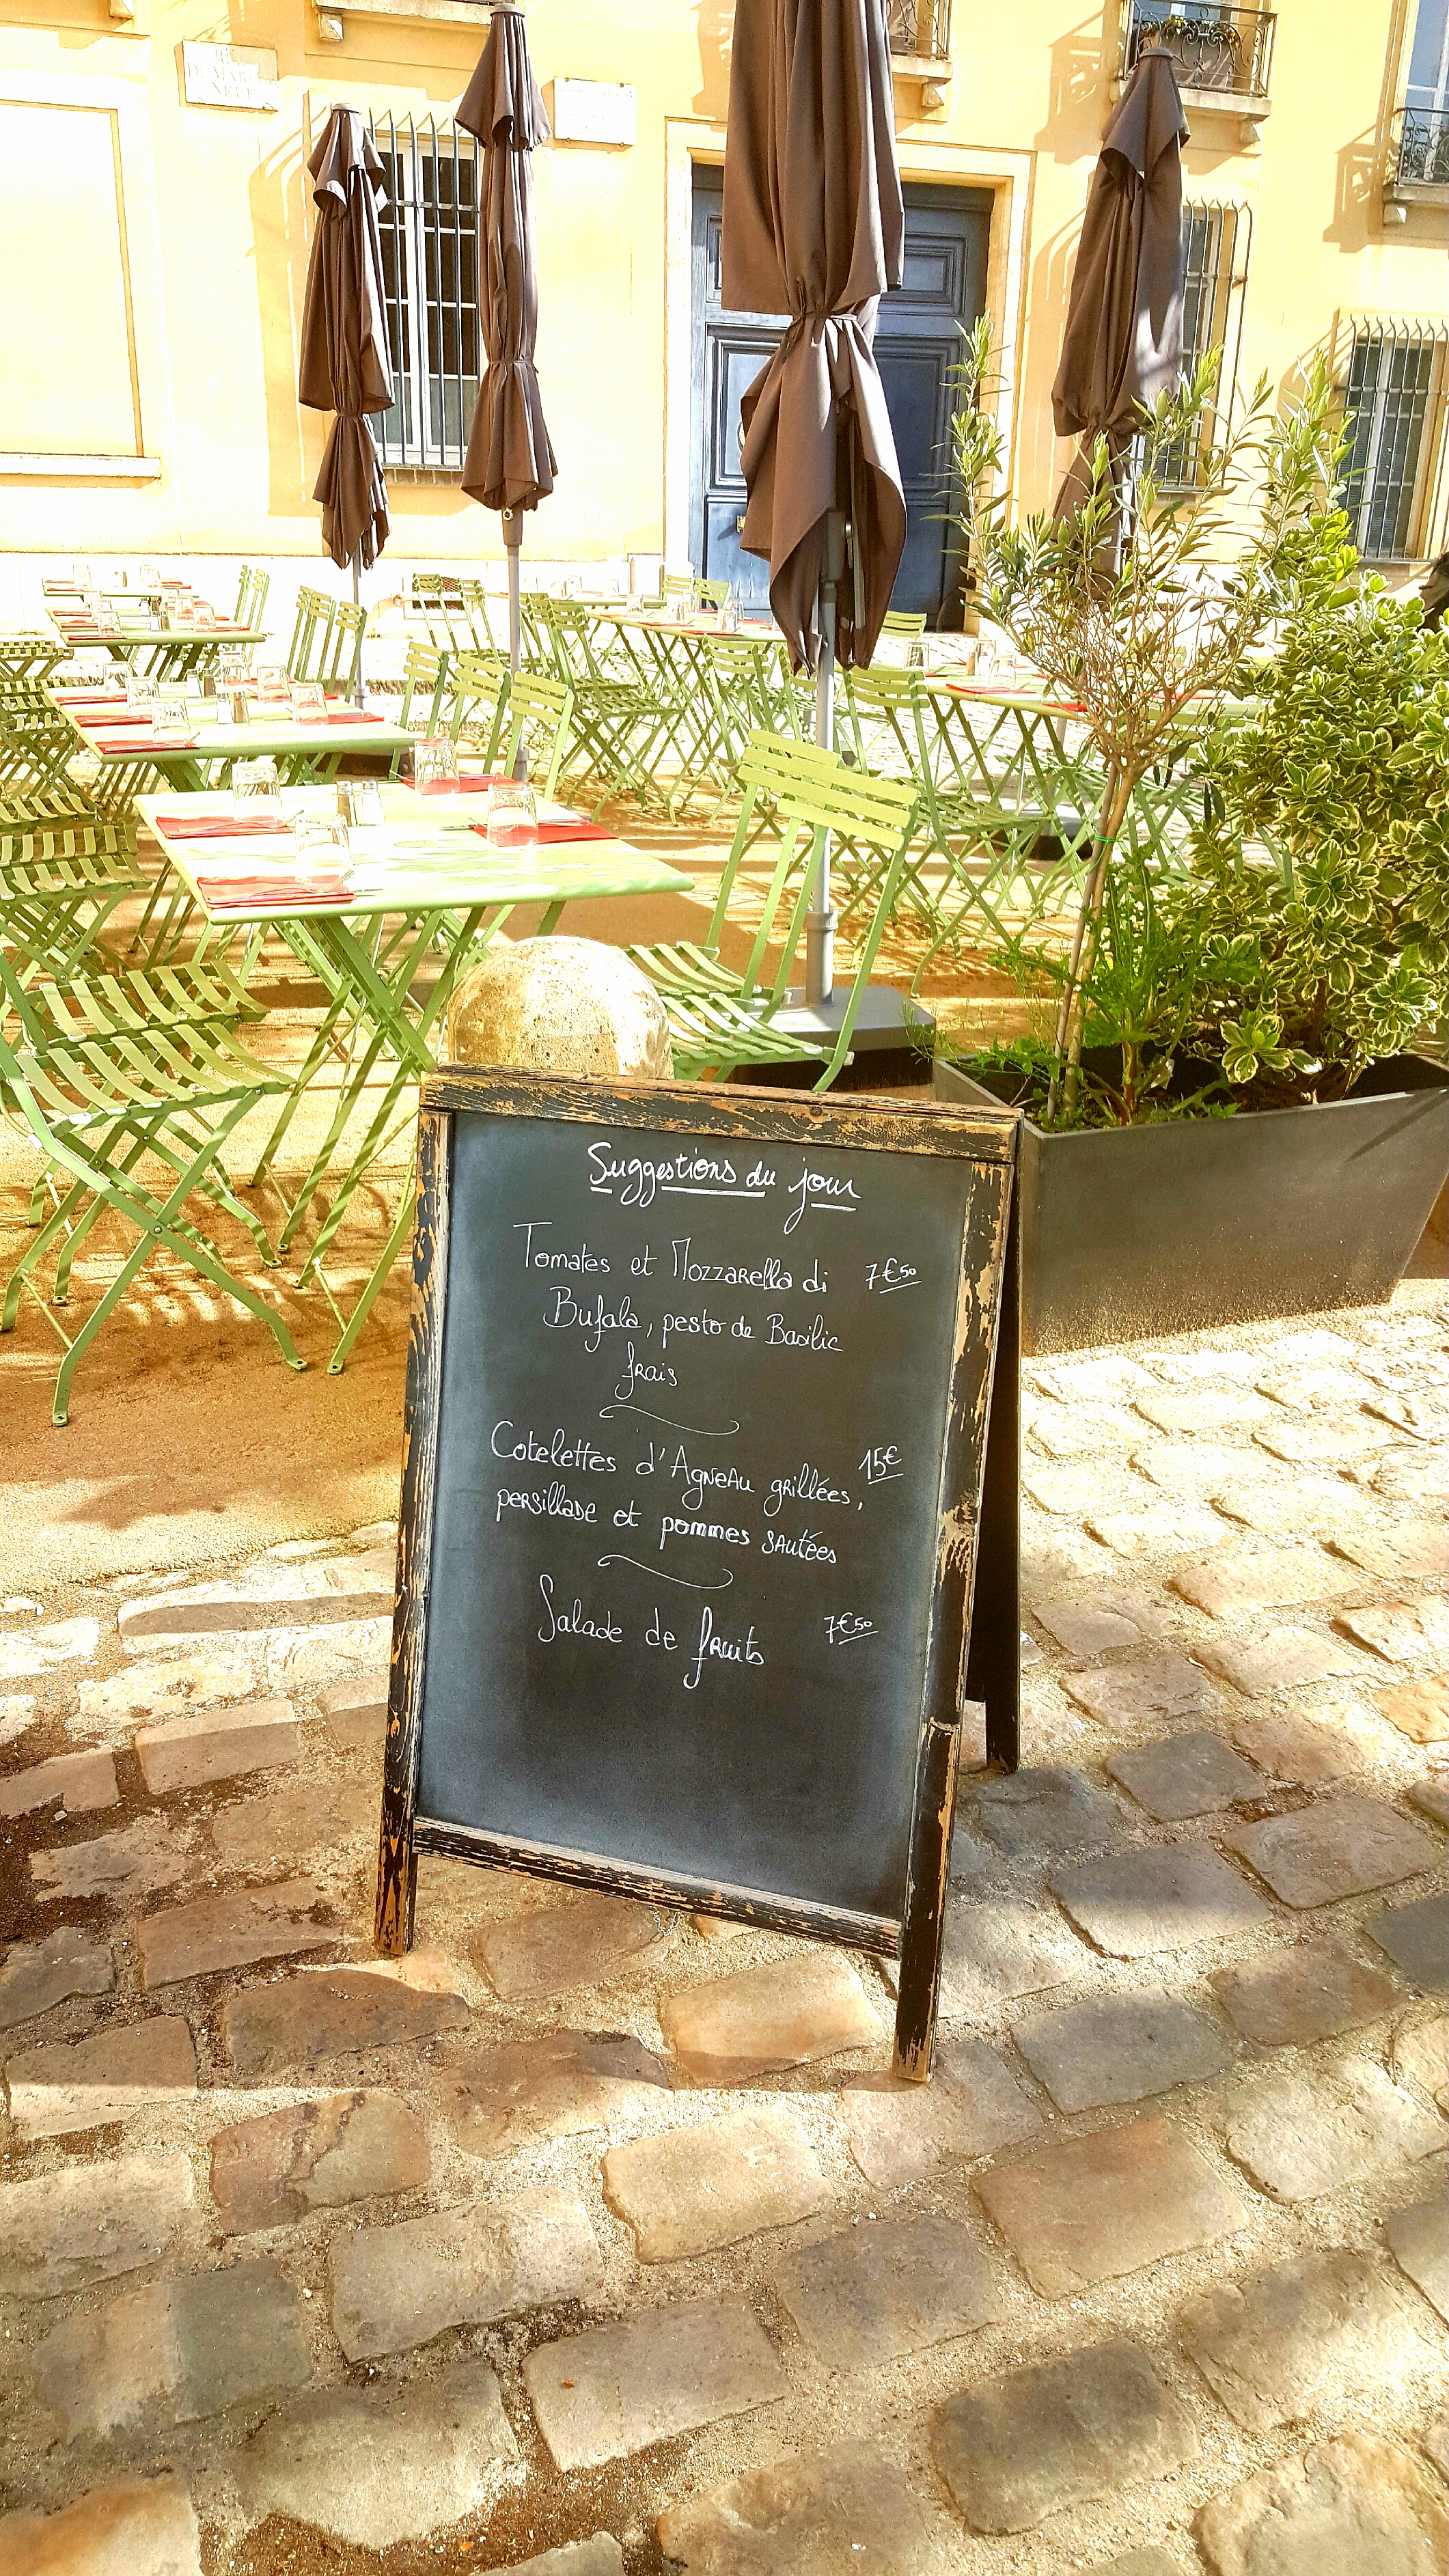 DU MARCHÉ
NEUF
Suggestions du jour
Tomates et Mozzarella di 7€50
Bufala, pesto de Basilic
frais
Cotelettes d'Agneau grillées, 15€
persillade et pommes sautées
Salade de fruits 7€50